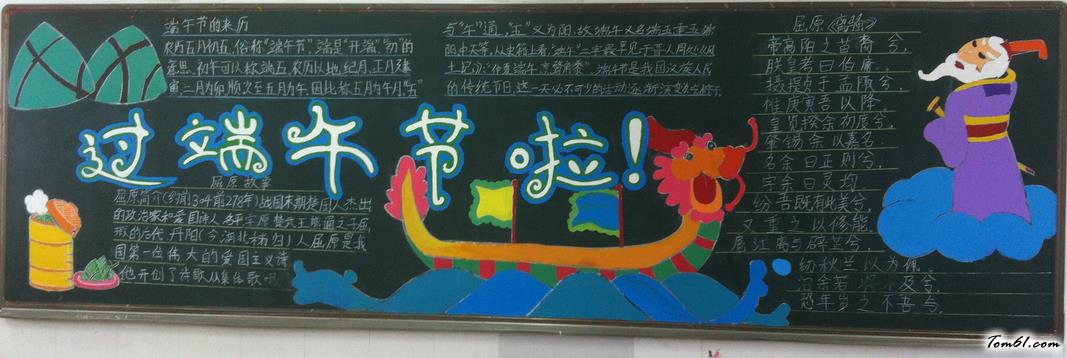 端午节的来历
农历五月初五,俗称“端午节”,端是“开端”、“初”的
意思.初午可以称端五.农历以地支纪月,正月建
寅,二月为卯,顺次至五月为午,因此称五月为午月,“五”
与“午”通,“五”又为阳,故端午又名端五重五端
阳中天等,从史籍上看,“端午”二字最早见于晋人周处
土记》:“仲夏端午,烹鹜角黍”.端午节是我国汉族人民
的传统节日,这一天必不可少的活动逐渐演变
过端午节啦!
屈原故事
屈原简介(约前340前278年)战国末期楚国人杰出
的政治家和爱国诗人,
后代,丹阳(今湖北秭归)人屈原是我
国第一位伟大的爱国主义诗
他开创了诗歌从集体歌
屈原《离骚》
帝高阳之苗裔兮,
朕皇考曰伯庸。
摄提贞于孟陬兮,
惟庚寅吾以降。
皇览揆余初度兮,
肇锡余以嘉名。
名余曰正则兮,
字余曰灵均。
纷吾既有此美兮,
又重之以修能。
扈江离与辟芷兮,
纫秋兰以为佩
汩余若将不及兮,
恐年岁之不吾兮,
Tom61.com